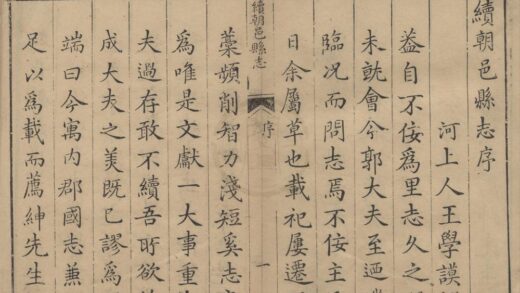 續朝邑縣志序
河上人王學謨
葢自不佞爲里志久之
未就會今郭大夫至迺
臨况而問志焉不佞主
日余屬草也載祀屢遷
續朝邑縣志
序
一
藁頻削智力淺短奚志
爲唯是文獻一大事重
夫過存敢不續吾所欲
成大夫之美既已謬爲
端曰今寓内郡國志兼
足以爲載而薦紳先生